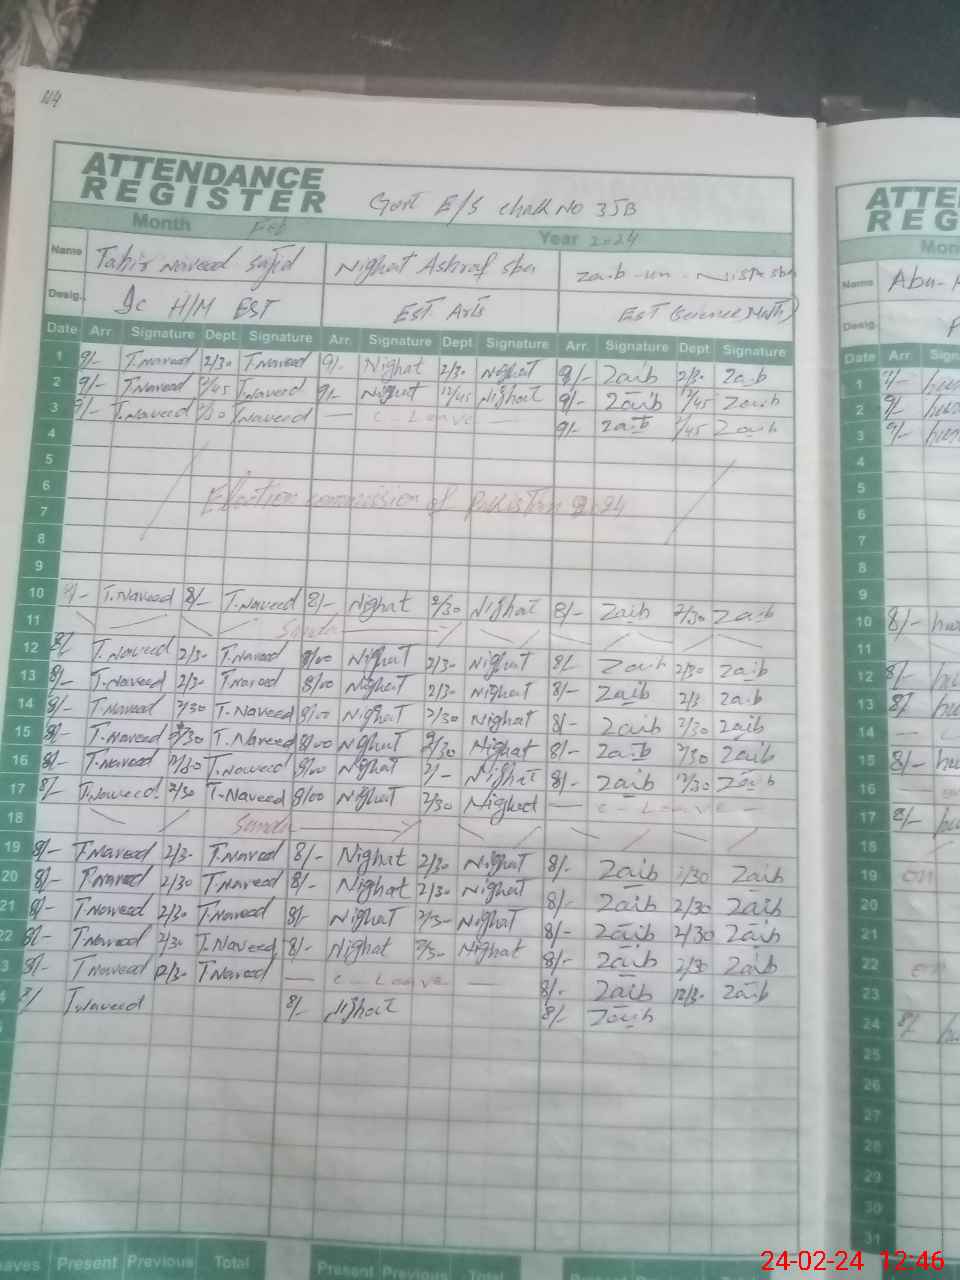 ATTENDANCE
REGISTER Govt E/S chak No 35B
Month Feb Year 2024
Name Tahir Naveed Sajid Nighat Ashraf sba Zaib-un-Nisa sba
Desig. Ic H/M EST EST Arts EST (Science Math)
Date Arr. Signature Dept. Signature Arr. Signature Dept Signature Arr. Signature Dept Signature
1 9/- T.Naveed 2/30 T.Naveed 9/- Nighat 2/30 Nighat 9/- Zaib 2/30 Zaib
2 9/- T.Naveed 12/45 T.Naveed 9/- Nighat 12/45 Nighat 9/- Zaib 12/45 Zaib
3 9/- T.Naveed T.Naveed — C - Leave — 9/- Zaib 1/45 Zaib
4
5
6 Election commission of Pakistan 2024
7
8
9
10 9/- T.Naveed 8/- T.Naveed 8/- Nighat 2/30 Nighat 8/- Zaib 2/30 Zaib
11 Sunday
12 8/- T.Naveed 2/30 T.Naveed 8/00 Nighat 2/30 Nighat 8/- Zaib 2/30 Zaib
13 8/- T.Naveed 2/30 T.Naveed 8/00 Nighat 2/30 Nighat 8/- Zaib 2/3 Zaib
14 8/- T.Naveed 2/30 T.Naveed 8/00 Nighat 2/30 Nighat 8/- Zaib 2/30 Zaib
15 8/- T.Naveed 2/30 T.Naveed 8/00 Nighat 2/30 Nighat 8/- Zaib 2/30 Zaib
16 8/- T.Naveed 12/30 T.Naveed 8/00 Nighat Nighat 8/- Zaib 12/30 Zaib
17 8/- T.Naveed 2/30 T.Naveed 8/00 Nighat 2/30 Nighat — C - Leave —
18 Sunday
19 8/- T.Naveed 2/30 T.Naveed 8/- Nighat 2/30 Nighat 8/- Zaib 2/30 Zaib
20 8/- T.Naveed 2/30 T.Naveed 8/- Nighat 2/30 Nighat 8/- Zaib 2/30 Zaib
21 8/- T.Naveed 2/30 T.Naveed 8/- Nighat 2/30 Nighat 8/- Zaib 2/30 Zaib
22 8/- T.Naveed 2/30 T.Naveed 8/- Nighat 2/30 Nighat 8/- Zaib 2/30 Zaib
3 8/- T.Naveed 12/30 T.Naveed — C - Leave — 8/- Zaib 12/30 Zaib
4 8/- T.Naveed 8/- Nighat 8/- Zaib
Leaves Present Previous Total Present Previous Total
ATTE
REG
Mon
Name Abu-
Desig.
Date Arr Sign
1 9/-
2 9/-
3 9/-
4
5
6
7
8
9
10 8/-
11
12 8/-
13 8/-
14
15 8/-
16
17 8/-
18
19
20
21
22
23
24 8/-
25
26
27
28
29
30
31
24-02-24 12:46